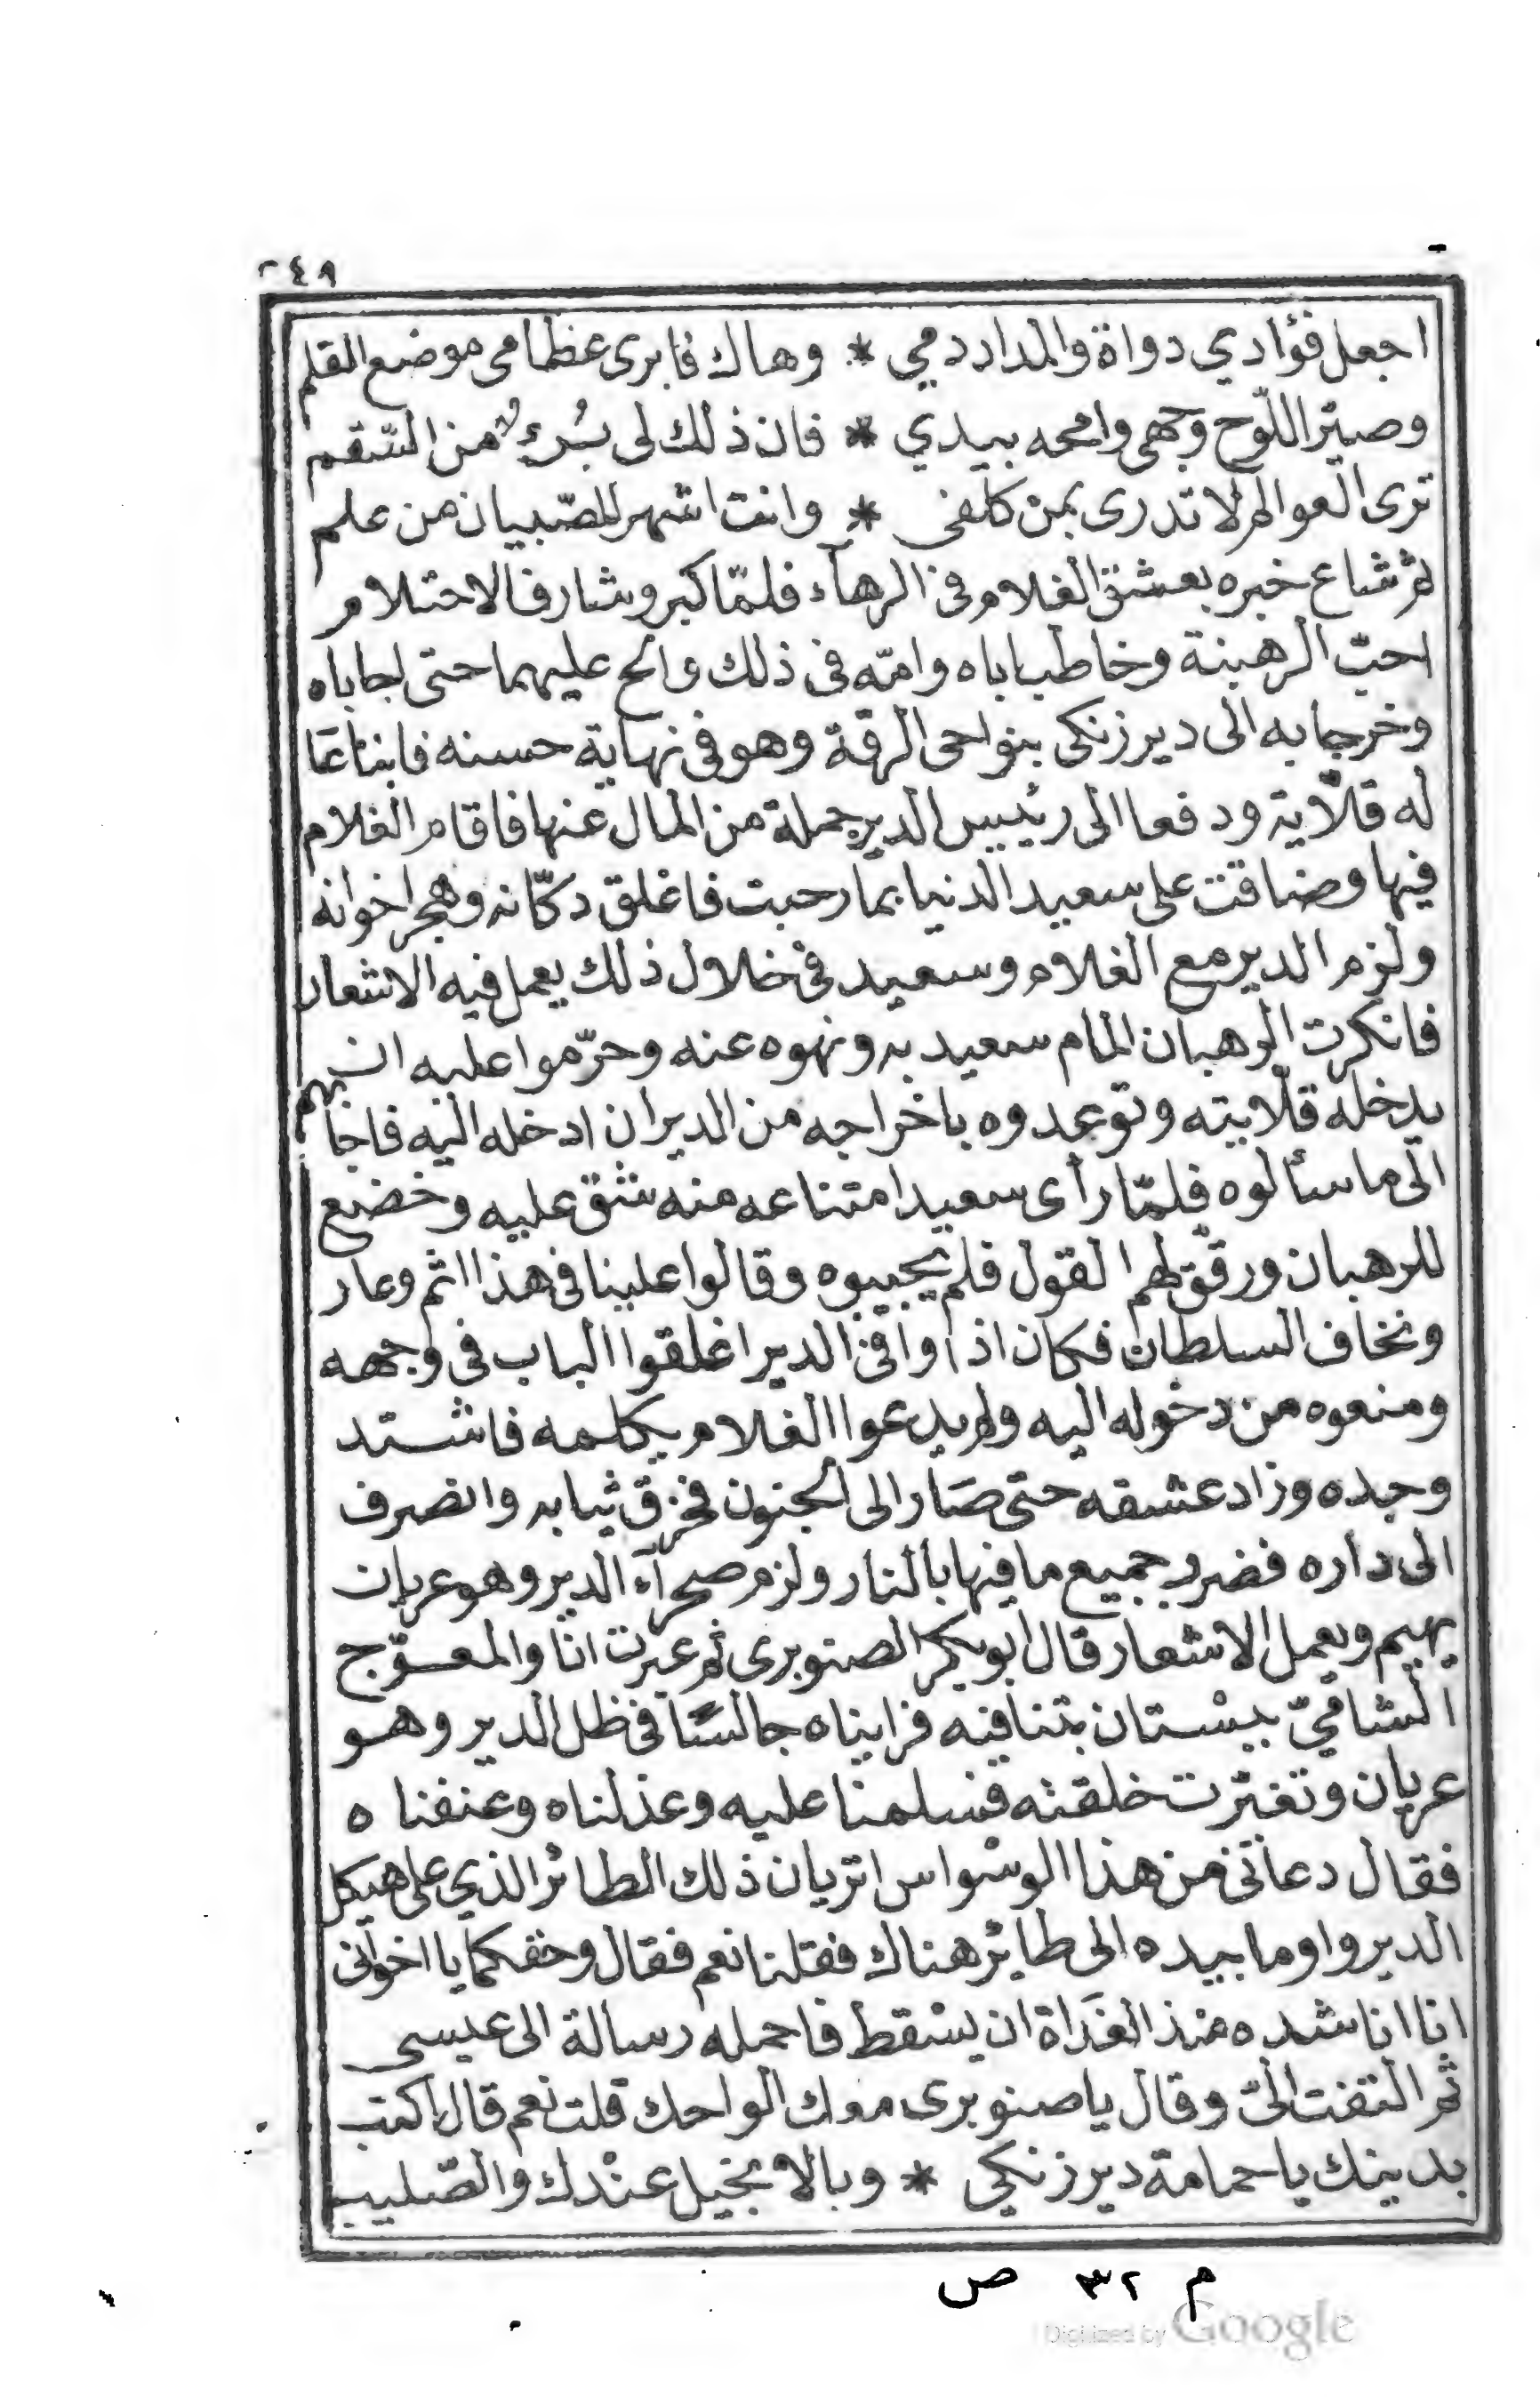 ٢٤٩
اجعل فؤادي دواة والمداد دمي * وهاك فابرى عظامى موضع القلم
وصيّر اللّوح وجهى وامحه بيدي * فان ذلك لى بُرءٌ من السّقم
ترى العوالم لا تدرى بمن كلفى * وانت اشهر للصّبيان من علم
ثم شاع خبره بعشق الغلام فى الرهآء فلمّا كبر وشارف الاحتلام
احبّ الرهبنة وخاطب اباه وامّه فى ذلك والح عليهما حتى اجاباه
وخرجا به الى دير زنكى بنواحى الرقة وهو فى نهاية حسنه فابتاعا
له قلّاية ودفعا الى رئييس الدير جملة من المال عنها فاقام الغلام
فيها وضاقت على سعيد الدنيا بما رحبت فاغلق دكّانه وهجر اخوانه
ولزم الدير مع الغلام وسعيد فى خلال ذلك يعمل فيه الاشعار
فانكرت الرهبان المام سعيد به ونهوه عنه وحرّموا عليه ان
يدخله قلّايته وتوعدوه باخراجه من الدير ان ادخله اليه فاجابهم
الى ما سألوه فلمّا رأى سعيد امتناعه منه شق عليه وخضع
للرهبان ورقّق لهم القول فلم يجيبوه وقالوا علينا فى هذا اثم وعار
ونخاف السلطان فكان اذا وافى الدير اغلقوا الباب فى وجهه
ومنعوه من دخوله اليه ولم يدعوا الغلام يكلمه فاشتد
وجده وزاد عشقه حتى صار الى الجنون فخرق ثيابه وانصرف
الى داره فضرب جميع ما فيها بالنار ولزم صحرآء الدير وهو عريان
يهيم ويعمل الاشعار قال ابو بكر الصنوبرى ثم عبرت انا والمعوّج
الشاميّ ببستان بتنا فيه فرايناه جالسًا فى ظل الدير وهو
عريان وتغيّرت خلقته فسلمنا عليه وعذلناه وعنفناه
فقال دعانى من هذا الوسْواس اتريان ذلك الطائر الذي على هيكل
الدير واوما بيده الى طايْر هناك فقلنا نعم فقال وحقكما يا اخوانى
انا اناشده منذ الغَداة ان يسْقط فاحمله رسالة الى عيسى
ثم التفت الىّ وقال يا صنوبرى معك الواحك قلت نعم قال اكتب
بدينك يا حمامة دير زنكي * وبالانجيل عنْدك والصّليب
م ٣٢ ص
Digitized by Google